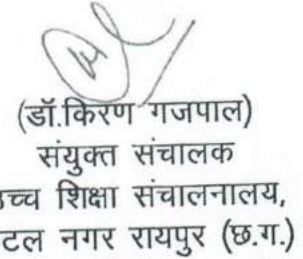 (डॉ.किरण गजपाल)
संयुक्त संचालक
च्च शिक्षा संचालनालय,
टल नगर रायपुर (छ.ग.)